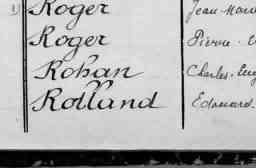 Roger Jean-Marie
Roger Pierre
Rohan Charles-Eug
Rolland Edouard